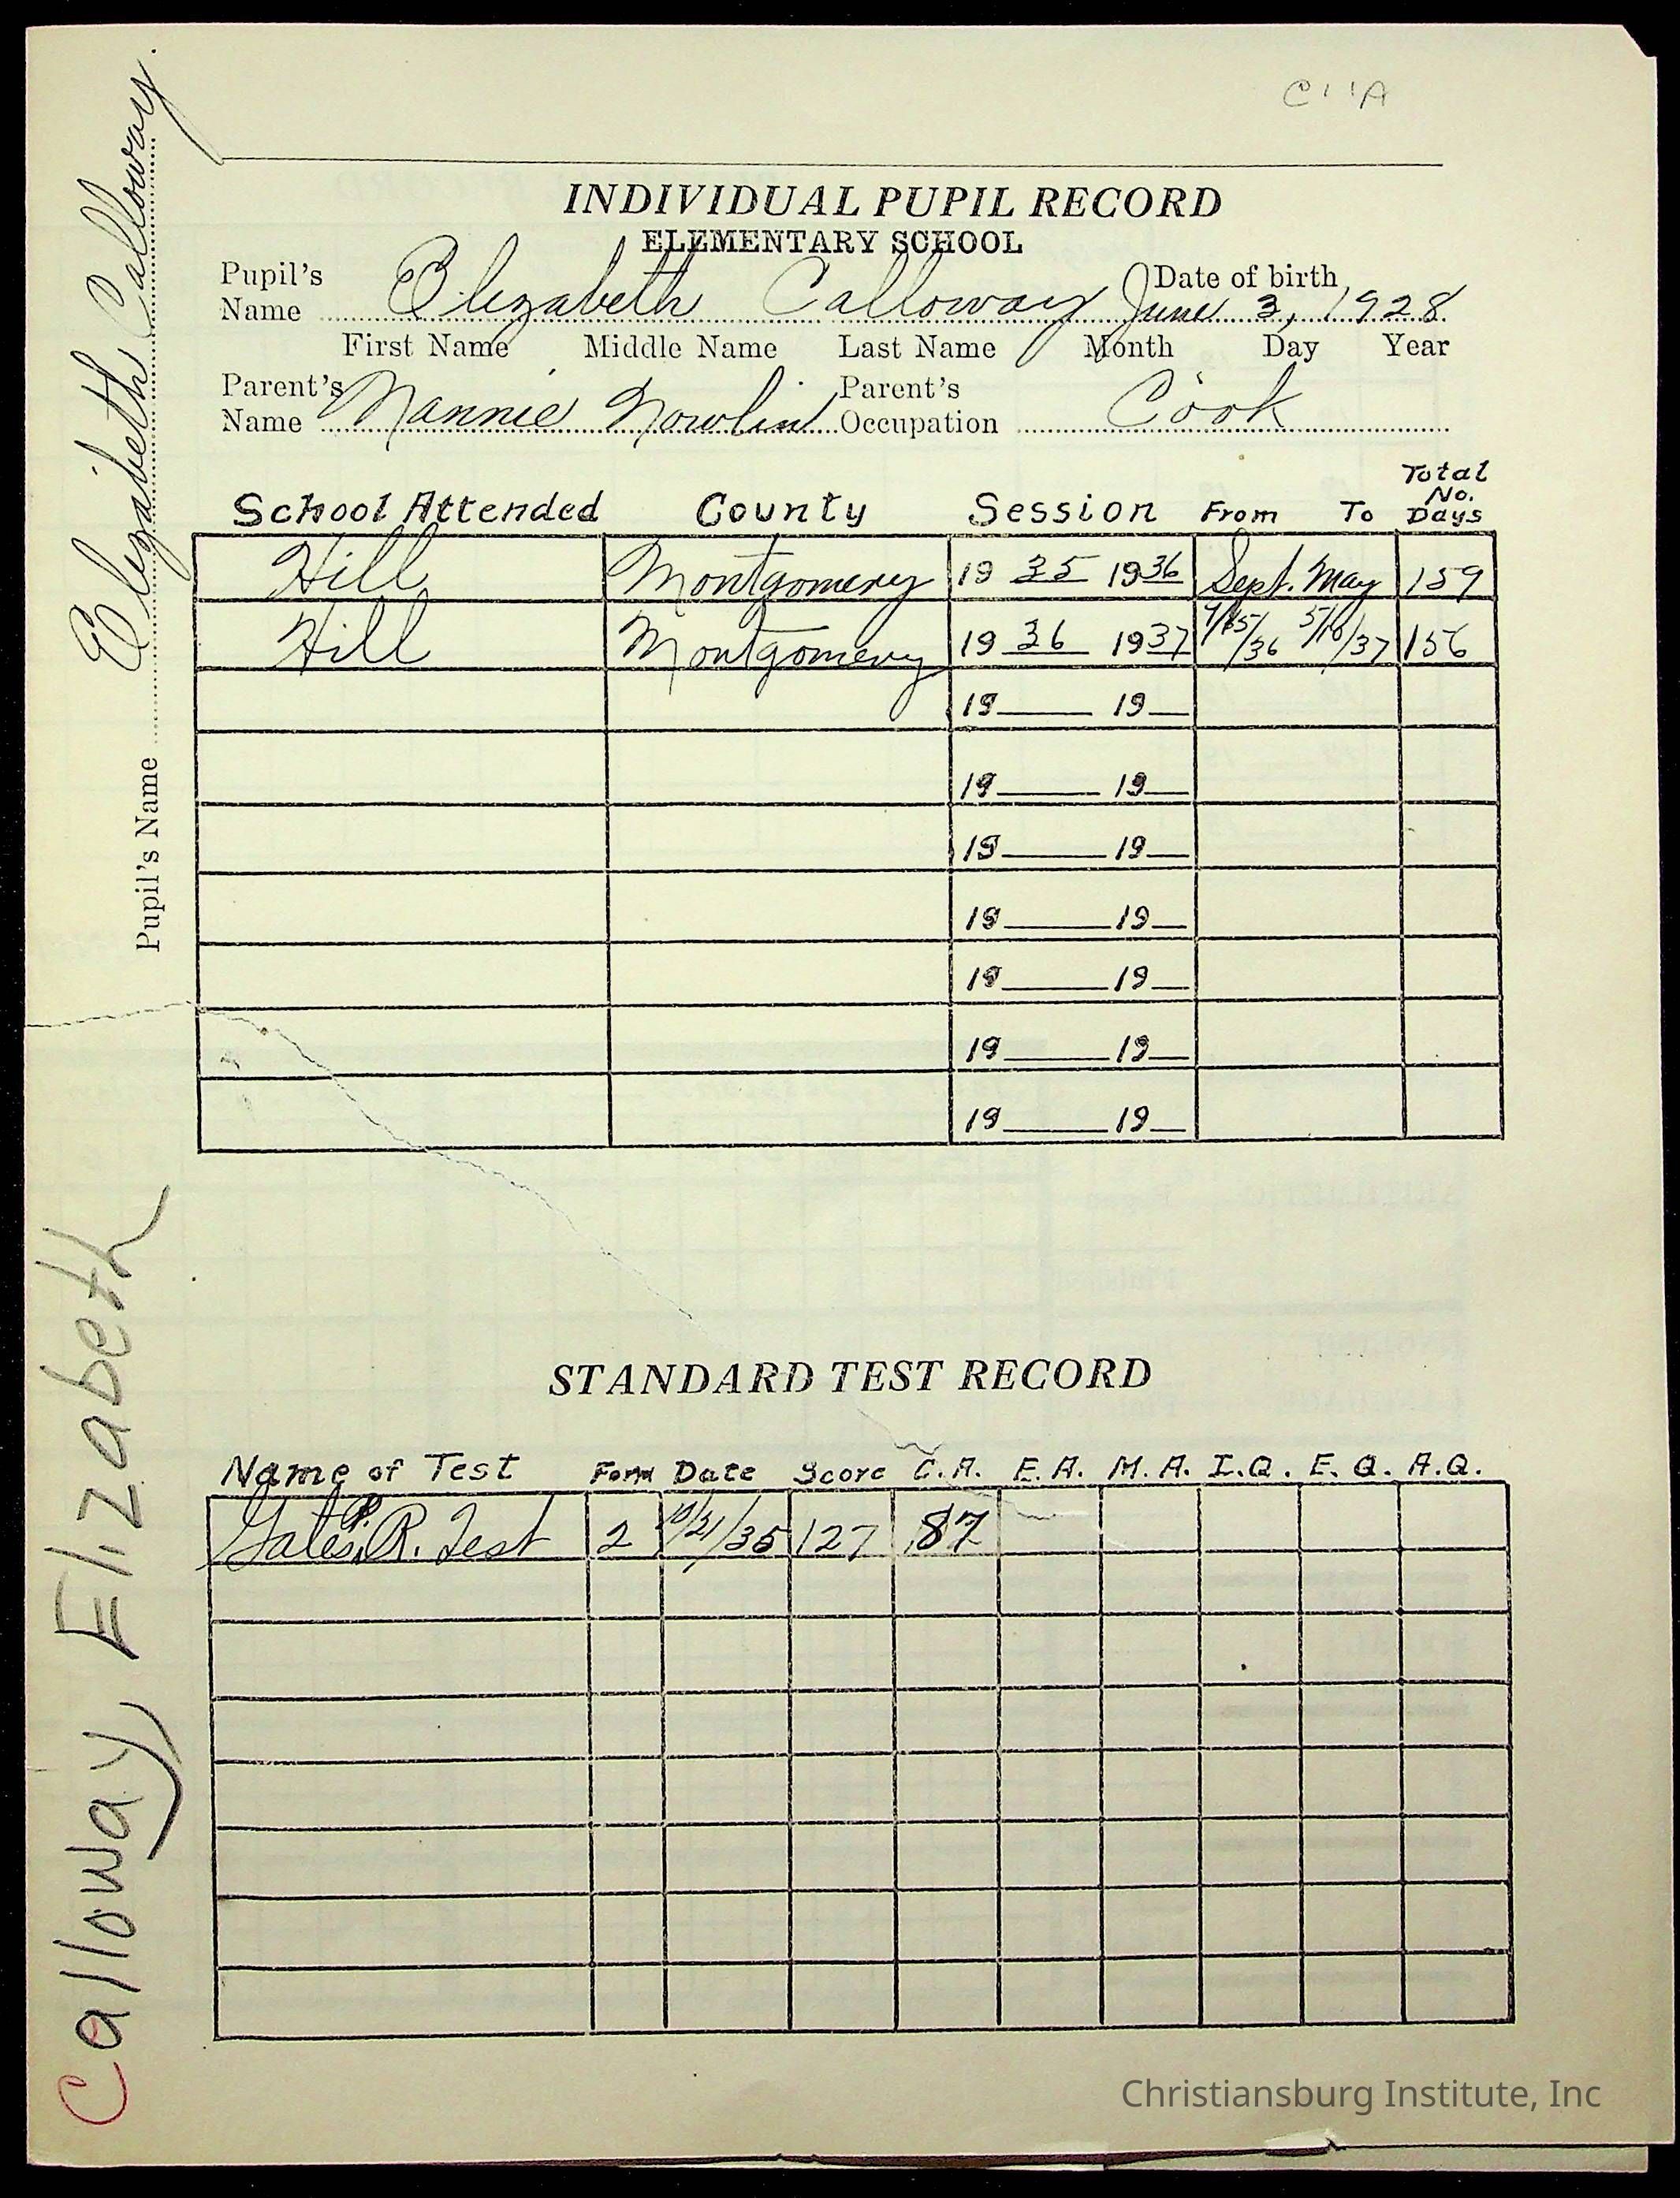 C''A
INDIVIDUAL PUPIL RECORD
ELEMENTARY SCHOOL
Pupil's Name Elizabeth Calloway Date of birth June 3, 1928
First Name Middle Name Last Name Month Day Year
Parent's Name Nannie Nowlin Parent's Occupation Cook
School Attended County Session From To Total No. Days
Hill Montgomery 19 35 1936 Sept. May 159
Hill Montgomery 19 36 1937 5/18/37 156
19 19
19 19
19 19
19 19
19 19
19 19
19 19
STANDARD TEST RECORD
Name of Test Form Date Score C.A. E.A. M.A. I.Q. E.Q. A.Q.
Gates P. R. Test 2 10/21/35 127 87
Pupil's Name Elizabeth Calloway.
Calloway, Elizabeth
Christiansburg Institute, Inc